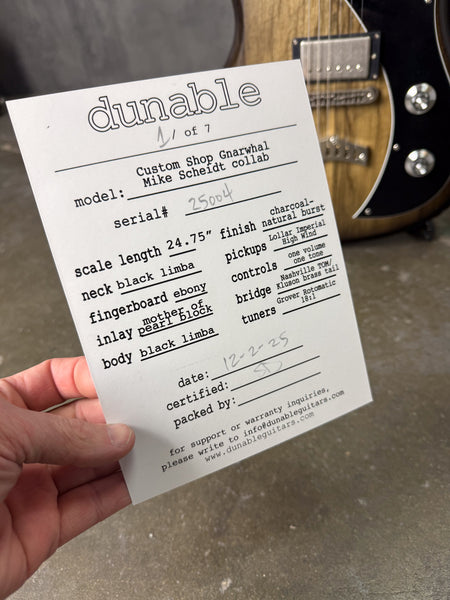 dunable
1/ of 7
model: Custom Shop Gnarwhal
Mike Scheidt collab
serial# 25004
scale length 24.75"
neck black limba
fingerboard ebony
inlay mother of
pearl block
body black limba
finish charcoal-
natural burst
pickups Lollar Imperial
High Wind
controls one volume
one tone
bridge Nashville TOM/
Kluson brass tail
tuners Grover Rotomatic
18:1
date: 12-2-25
certified:
packed by:
for support or warranty inquiries,
please write to info@dunableguitars.com
www.dunableguitars.com